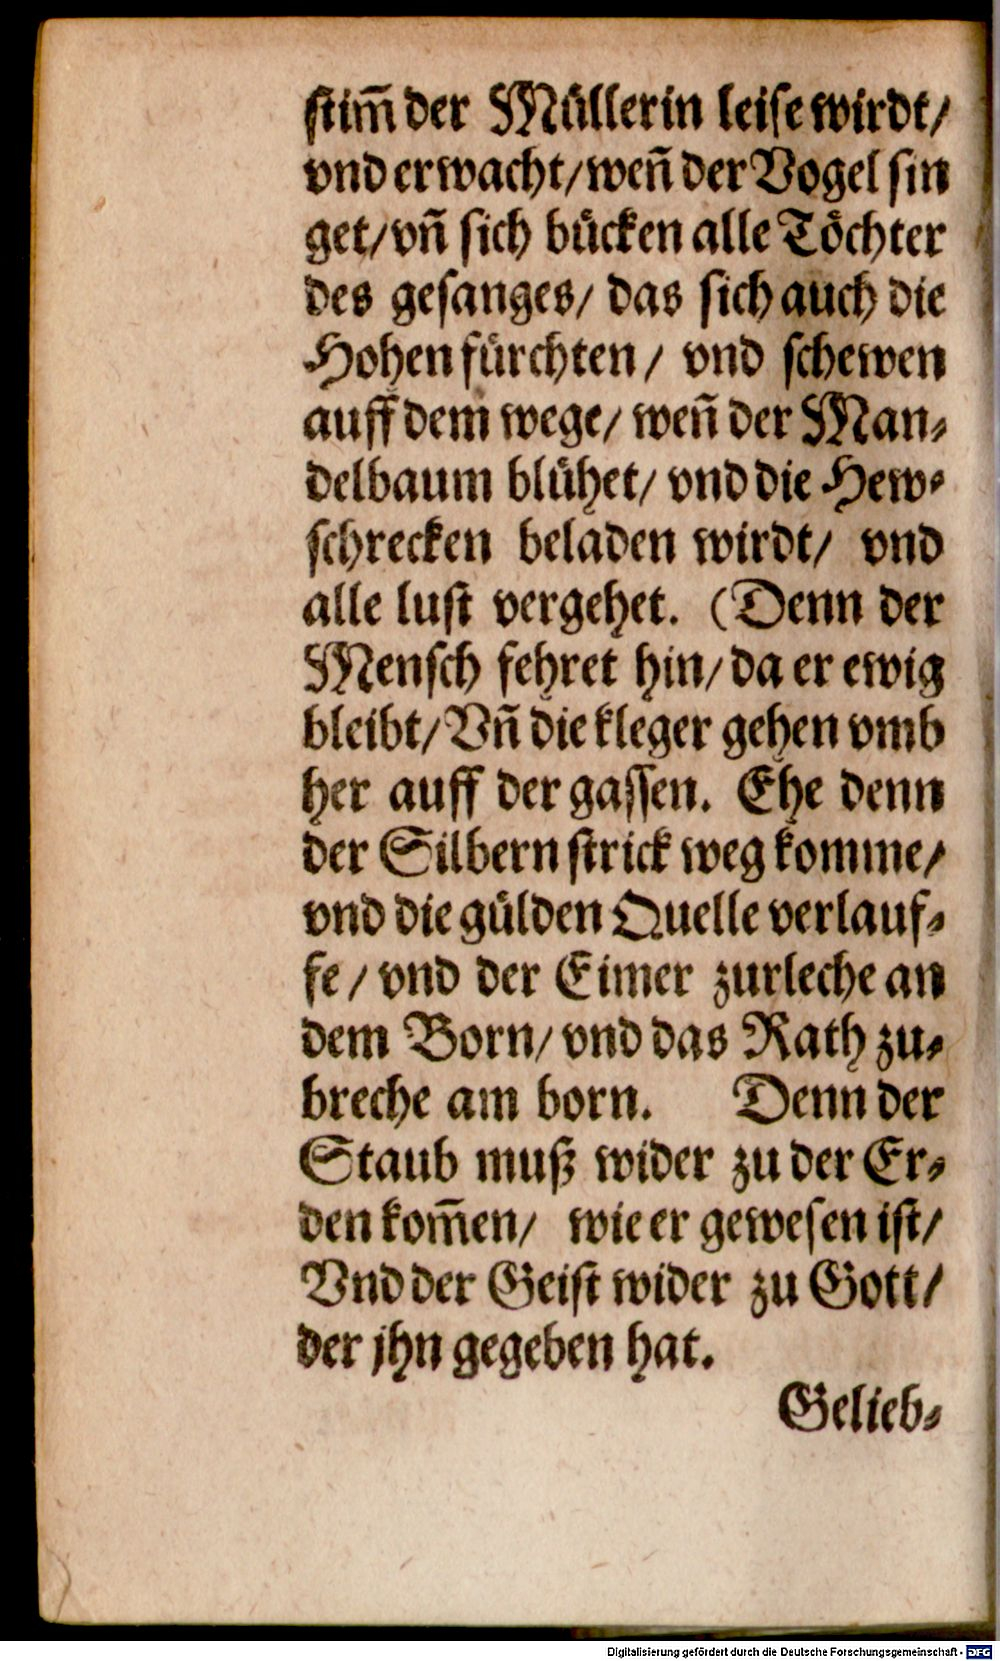 stim̄ der Müllerin leise wirdt/
vnd erwacht/ weñ der Vogel sin
get/ vñ sich bücken alle Töchter
des gesanges/ das sich auch die
Hohen fürchten/ vnd schewen
auff dem wege/ weñ der Man⸗
delbaum blühet/ vnd die Hew⸗
schrecken beladen wirdt/ vnd
alle lust vergehet. (Denn der
Mensch fehret hin/ da er ewig
bleibt/ Vñ die kleger gehen vmb
her auff der gassen. Ehe denn
der Silbern strick weg komme/
vnd die gülden Quelle verlauf⸗
fe/ vnd der Eimer zurleche an
dem Born/ vnd das Rath zu⸗
breche am born. Denn der
Staub muß wider zu der Er⸗
den kom̄en/ wie er gewesen ist/
Vnd der Geist wider zu Gott/
der jhn gegeben hat.
Gelieb⸗
Digitalisierung gefördert durch die Deutsche Forschungsgemeinschaft - DFG